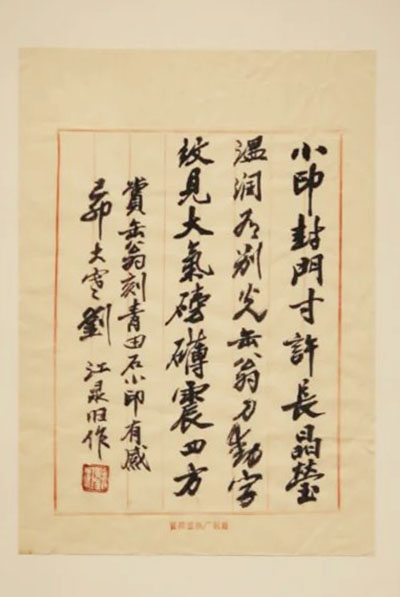 小印封門寸許長晶瑩
溫润有別光缶翁刀動字
紋見大氣磅礴震四方
賞缶翁刻青田石小印有感
己卯大寒劉江录旧作